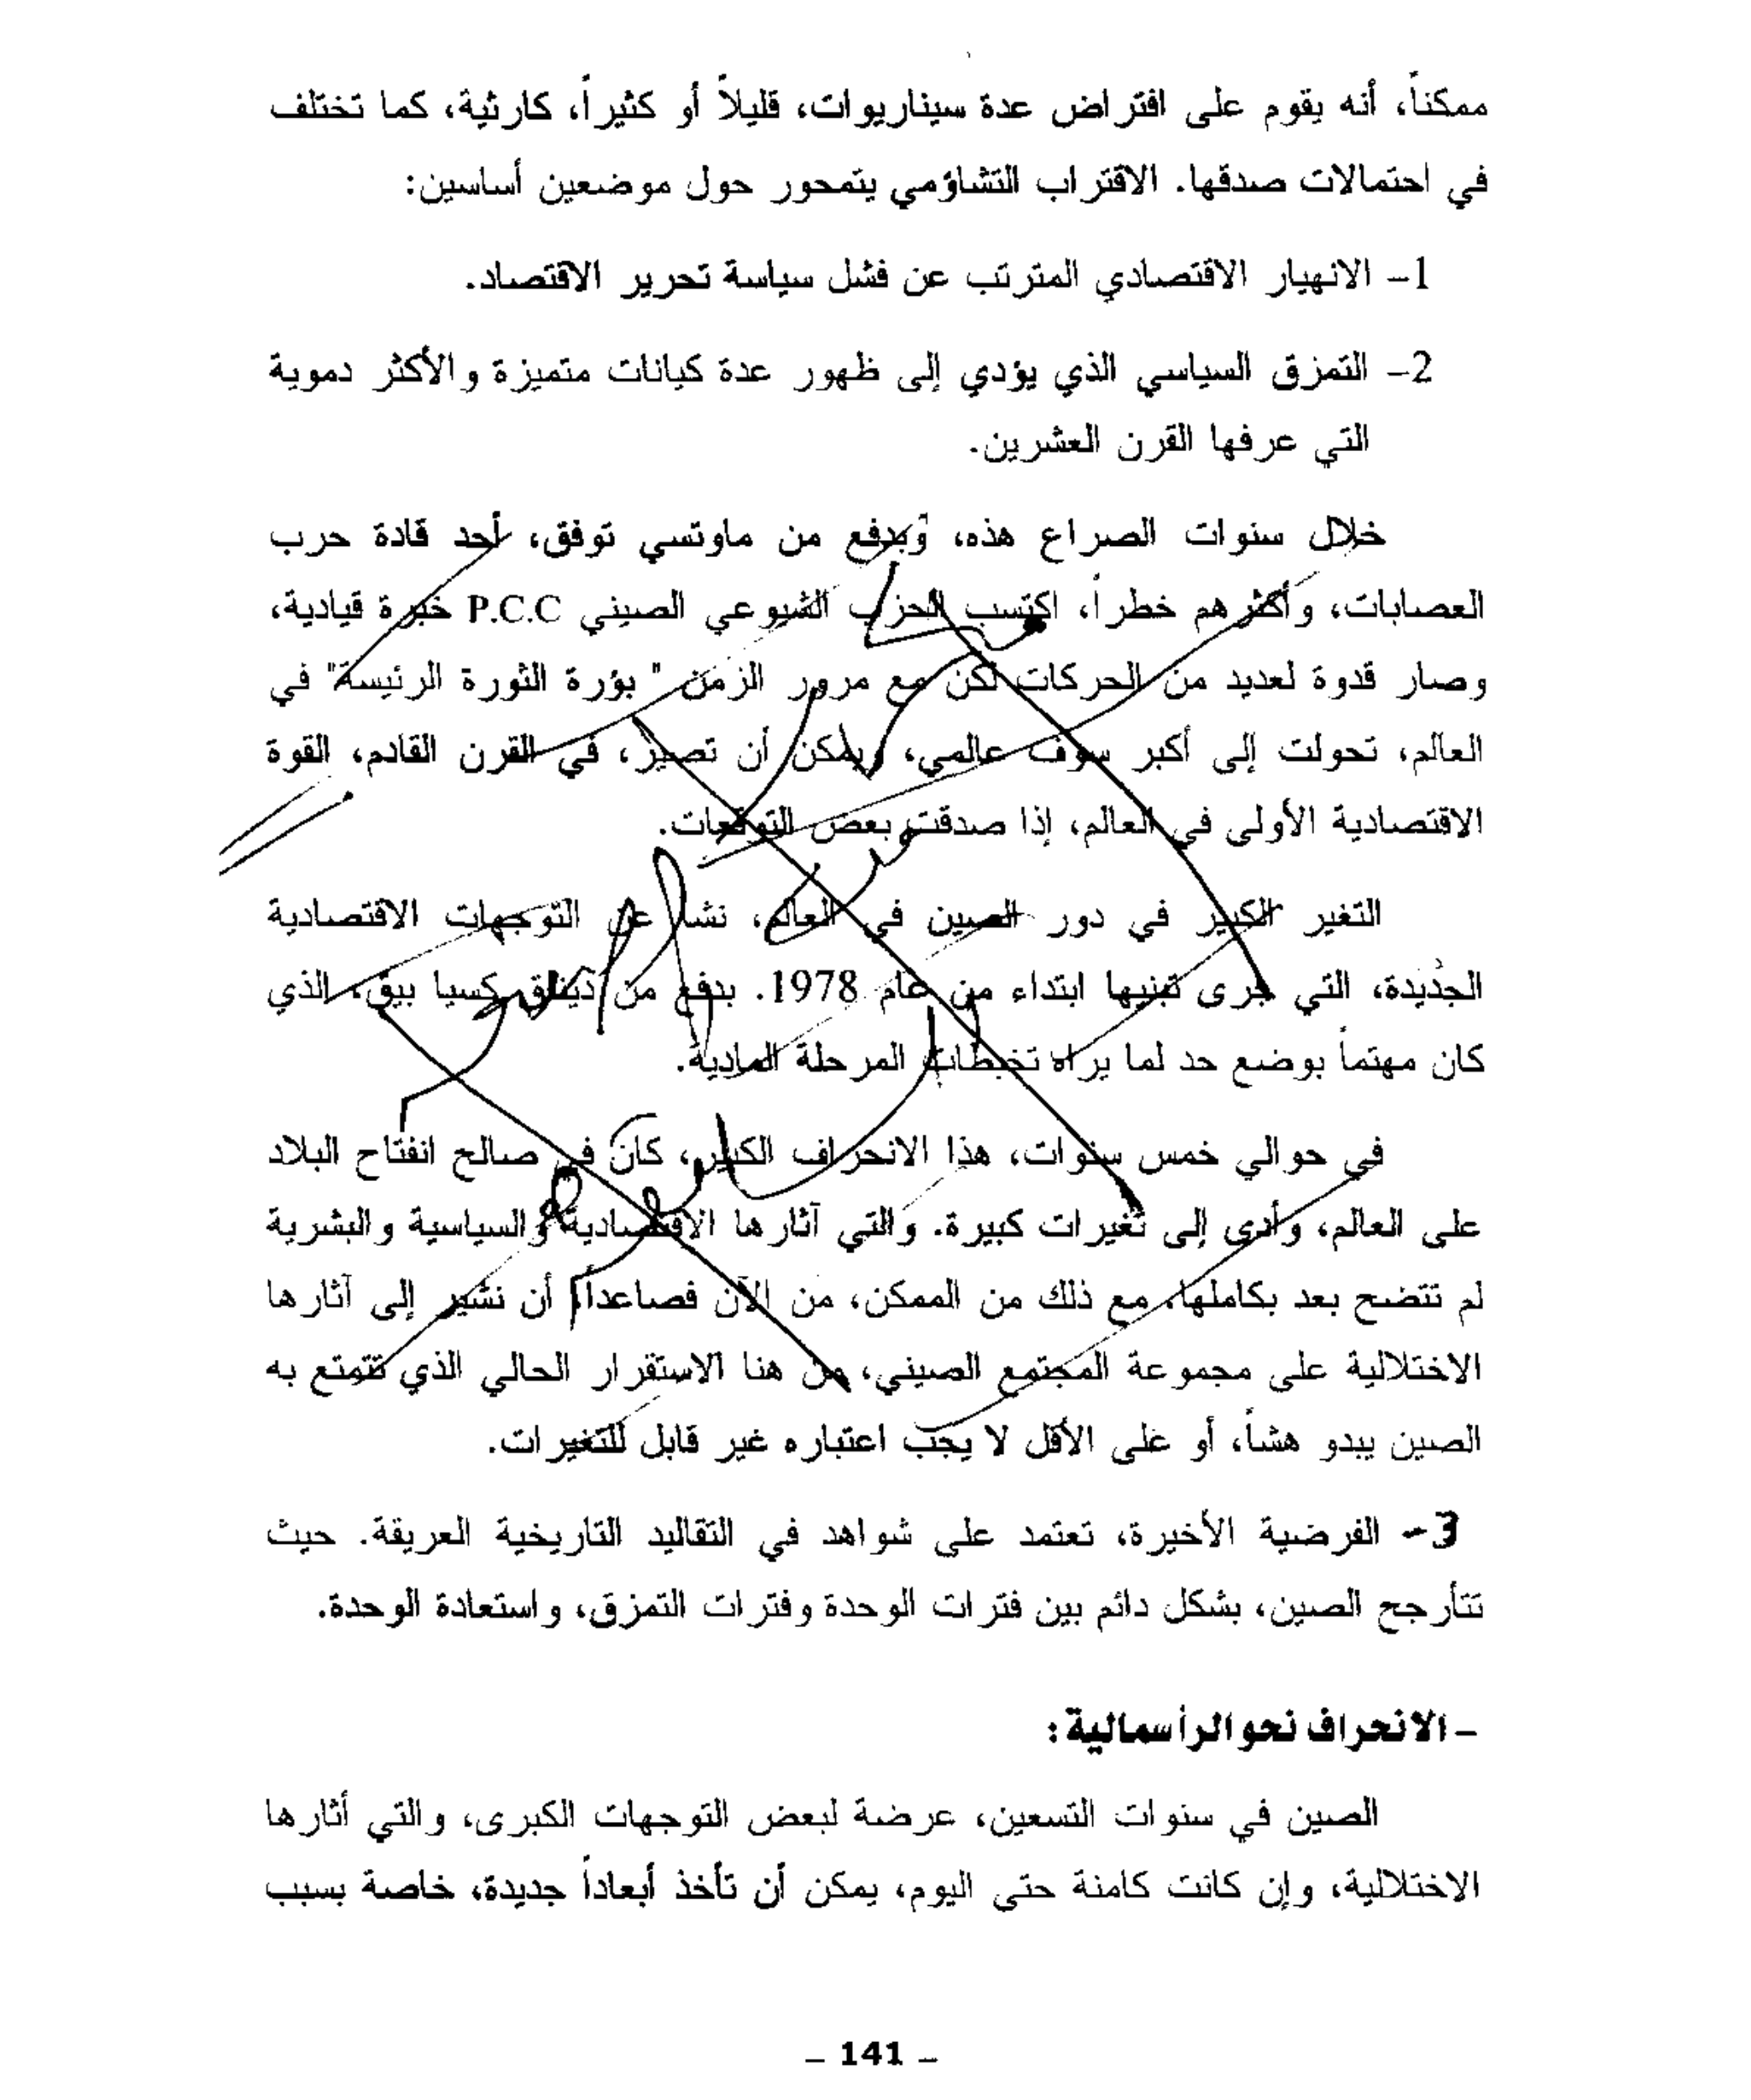 ممكناً، أنه يقوم على افتراض عدة سيناريوات، قليلاً أو كثيراً، كارثية، كما تختلف
في احتمالات صدقها. الاقتراب التشاؤمي يتمحور حول موضعين أساسين:
1- الانهيار الاقتصادي المترتب عن فشل سياسة تحرير الاقتصاد.
2- التمزق السياسي الذي يؤدي إلى ظهور عدة كيانات متميزة والأكثر دموية
التي عرفها القرن العشرين.
خلال سنوات الصراع هذه، وبدفع من ماوتسي توفق، أحد قادة حرب
العصابات، وأكثرهم خطراً، اكتسب الحزب الشيوعي الصيني P.C.C خبرة قيادية،
وصار قدوة لعديد من الحركات لكن مع مرور الزمن " بؤرة الثورة الرئيسة" في
العالم، تحولت إلى أكبر سوف عالمي، ويمكن أن تصير، في القرن القادم، القوة
الاقتصادية الأولى في العالم، إذا صدقت بعض التوقعات.
التغير الكبير في دور الصين في العالم، نشأ عن التوجهات الاقتصادية
الجديدة، التي جرى تبنيها ابتداء من عام 1978. بدفع من ديناق كسيا بيق، الذي
كان مهتماً بوضع حد لما يراه تخبطات المرحلة المادية.
في حوالي خمس سنوات، هذا الانحراف الكبير، كان في صالح انفتاح البلاد
على العالم، وأدى إلى تغيرات كبيرة. والتي آثارها الاقتصادية والسياسية والبشرية
لم تتضح بعد بكاملها، مع ذلك من الممكن، من الآن فصاعداً، أن نشير إلى آثارها
الاختلالية على مجموعة المجتمع الصيني، من هنا الاستقرار الحالي الذي تتمتع به
الصين يبدو هشاً، أو على الأقل لا يجب اعتباره غير قابل للتغيرات.
3- الفرضية الأخيرة، تعتمد على شواهد في التقاليد التاريخية العريقة. حيث
تتأرجح الصين، بشكل دائم بين فترات الوحدة وفترات التمزق، واستعادة الوحدة.
- الانحراف نحو الرأسمالية:
الصين في سنوات التسعين، عرضة لبعض التوجهات الكبرى، والتي أثارها
الاختلالية، وإن كانت كامنة حتى اليوم، يمكن أن تأخذ أبعاداً جديدة، خاصة بسبب
- 141 -